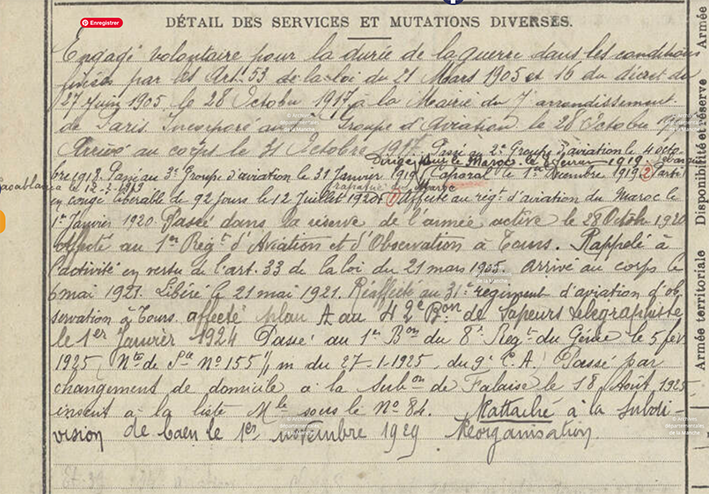 Enregistrer
DÉTAIL DES SERVICES ET MUTATIONS DIVERSES.
Engagé volontaire pour la durée de la guerre dans les conditions
par les Art. 53 de la loi du 21 Mars 1905 et 16 du décret du
27 Juin 1905 le 28 Octobre 1917 à la Mairie du 7e arrondissement
de Paris. Incorporé au Groupe d'Aviation le 28 Octobre
Arrivé au corps le 31 Octobre 1917. Passé au 2e Groupe d'aviation le 4 octo-
Dirigé sur le Maroc le 8 février 1919
bre 1918. Passé au 3e Groupe d'aviation le 31 Janvier 1919 Caporal le 1er Décembre 1919 2 Parti
Casablanca le 12-2-1919
rapatrié du Maroc
en congé libérable de 92 jours le 12 Juillet 1920 1 Affecté au régt d'aviation du Maroc le
1er Janvier 1920. Passé dans la réserve de l'armée active le 28 Octobre 1920
affecté au 1er Régt d'Aviation et d'Observation à Tours. Rappelé à
l'activité en vertu de l'art. 33 de la loi du 21 mars 1905. arrivé au corps le
6 mai 1921. Libéré le 21 mai 1921. Réaffecté au 31e régiment d'aviation d'ob-
servation à Tours. affecté plan A au 42e Bon de Sapeurs télégraphistes
le 1er Janvier 1924 Passé au 1er Bon du 8e Régt du Génie le 5 fév
1925 (Nte de Sce No 155 1/m du 27-1-1925, du 9e C.A.) Passé par
changement de domicile à la Subon de Falaise le 18 Août 1925
inscrit à la liste Mle sous le No 84. Rattaché à la subdi-
vision de Caen le 1er novembre 1929 Réorganisation.
Armée territoriale
Disponibilité et réserve
Armée